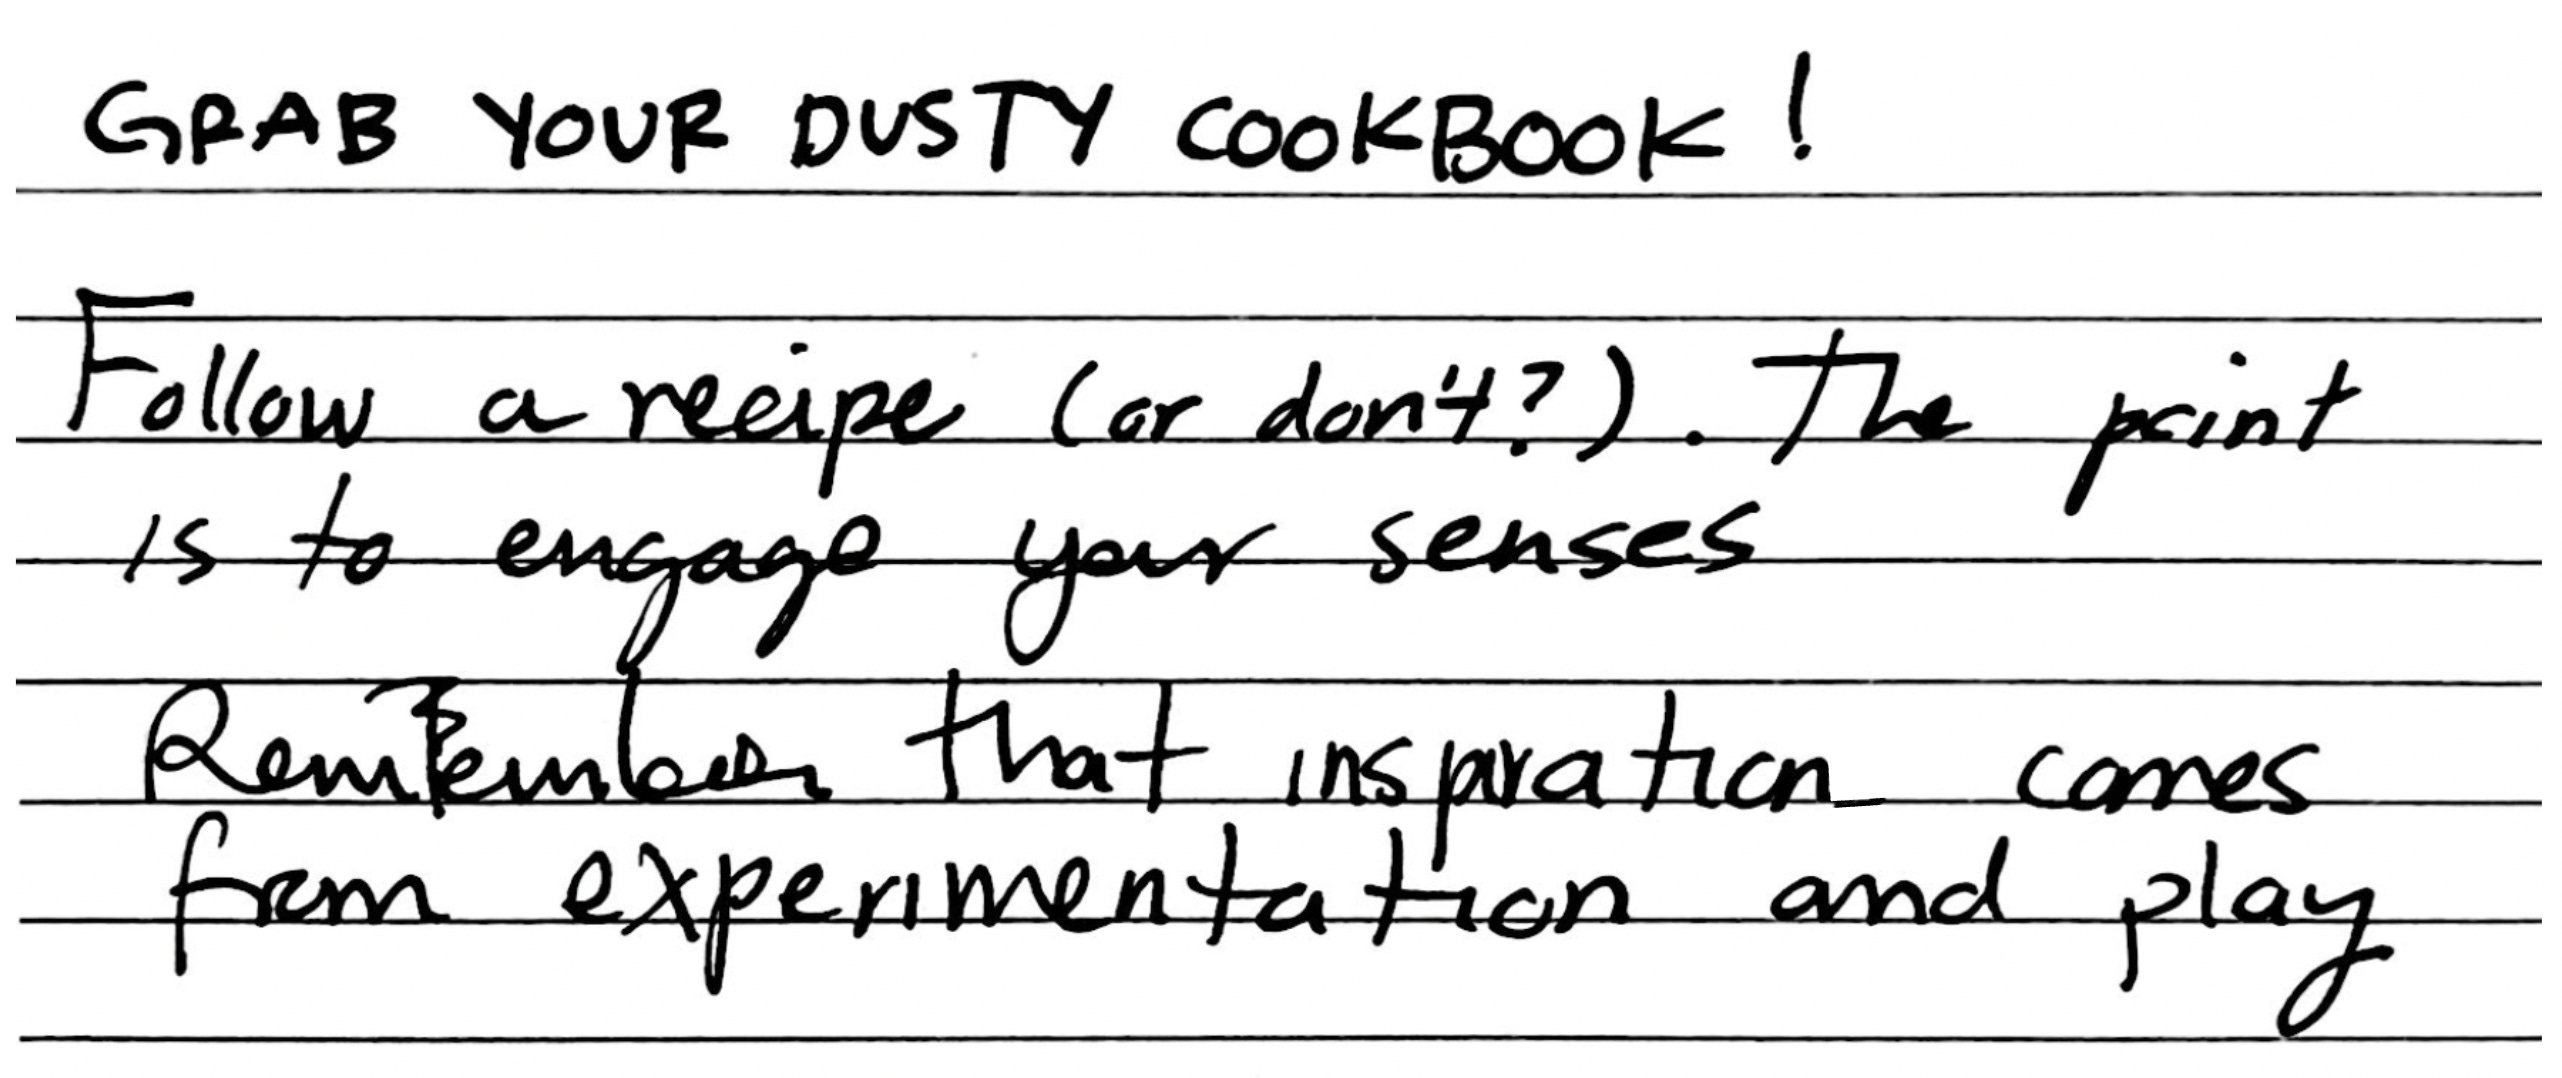 GRAB YOUR DUSTY COOKBOOK!
Follow a recipe (or don't?). The point
is to engage your senses
Remember that inspiration comes
from experimentation and play